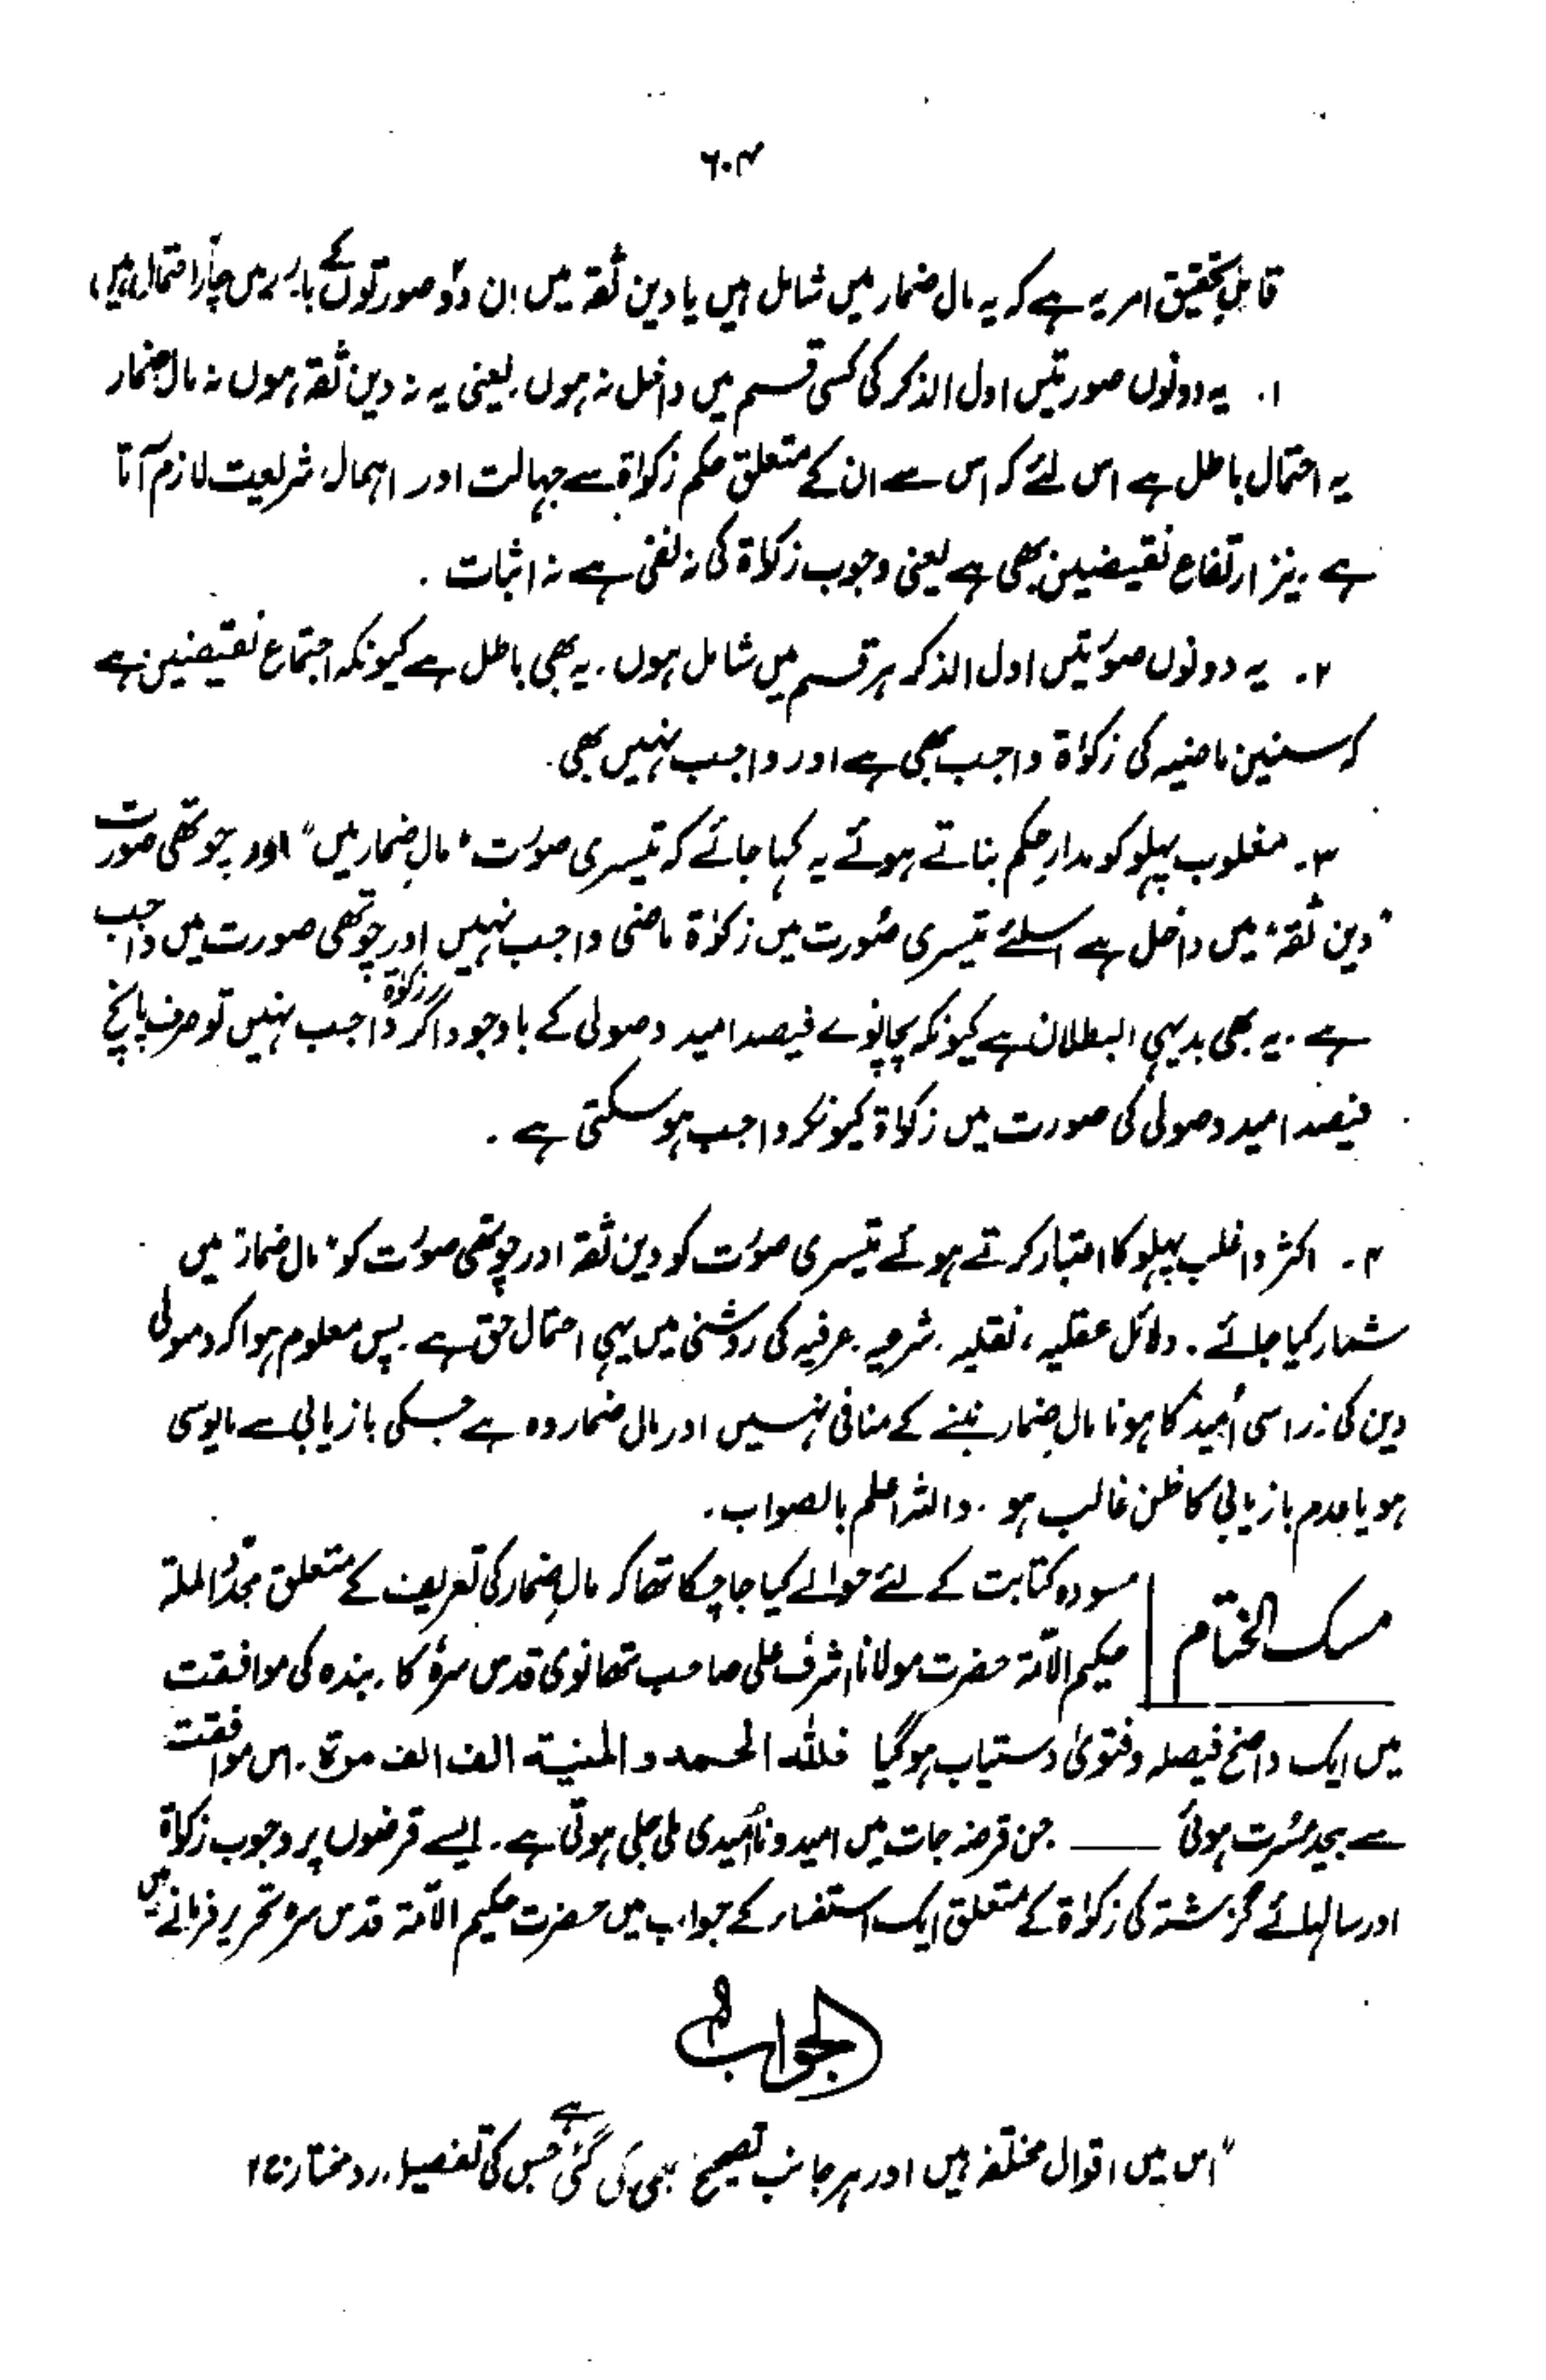 ۶۰۴
قابلِ تحقیق امر یہ ہے کہ یہ مال ضمار میں شامل ہیں یا دین ثقہ میں ان دو صورتوں کے بارے میں چار احتمال ہیں،
۱. یہ دونوں صورتیں اول الذکر کی کسی قسم میں داخل نہ ہوں. یعنی یہ نہ دین ثقہ ہوں نہ مال ضمار
یہ احتمال باطل ہے اس لئے کہ اس سے ان کے متعلق حکم زکواۃ سے جہالت اور اہمال شریعت لازم آتا
ہے. نیز ارتفاع نقیضین بھی ہے یعنی وجوب زکوٰۃ کی نہ نفی ہے نہ اثبات.
۲. یہ دونوں صورتیں اول الذکر ہر قسم میں شامل ہوں. یہ بھی باطل ہے کیونکہ اجتماع نقیضین ہے
کہ سنین ماضیہ کی زکوٰۃ واجب بھی ہے اور واجب نہیں بھی.
۳. مغلوب پہلو کو مدارِ حکم بناتے ہوئے یہ کہا جائے کہ تیسری صورت "مالِ ضمار میں" اور چوتھی صورت
"دین ثقہ" میں داخل ہے اسلئے تیسری صورت میں زکوٰۃ ماضی واجب نہیں اور چوتھی صورت میں واجب
ہے. یہ بھی بدیہی البطلان ہے کیونکہ پچانوے فیصد امید وصولی کے باوجود اگر زکوٰۃ واجب نہیں تو صرف پانچ
فیصد امید وصولی کی صورت میں زکوٰۃ کیونکر واجب ہو سکتی ہے.
۴. اکثر و اغلب پہلو کا اعتبار کرتے ہوئے تیسری صورت کو دین ثقہ اور چوتھی صورت کو "مال ضمار" میں
شمار کیا جائے. دلائل عقلیہ، نقلیہ. شرعیہ. عرفیہ کی روشنی میں یہی احتمال حق ہے. پس معلوم ہوا کہ وصولی
دین کی ذراسی اُمید کا ہونا مالِ ضمار بننے کے منافی نہیں اور مال ضمار وہ ہے جسکی بازیابی سے مایوسی
ہو یا عدم بازیابی کا ظن غالب ہو. واللہ اعلم بالصواب.
مسک الختام | مسودہ کتابت کے لئے حوالے کیا جاچکا تھا کہ مالِ ضمار کی تعریف کے متعلق مجدد الملۃ
حکیم الامۃ حضرت مولانا اشرف علی صاحب تھانوی قدس سرہٗ کا. بندہ کی موافقت
میں ایک واضح فیصلہ و فتویٰ دستیاب ہوگیا فللہ الحمد والمنیۃ الف الف مرۃ. اس موافقت
سے بیحد مسرت ہوئی ــــــ جن قرضہ جات میں امید و نااُمیدی ملی جلی ہوتی ہے. ایسے قرضوں پر وجوب زکوٰۃ
اور سالہائے گزشتہ کی زکوٰۃ کے متعلق ایک استفسار کے جواب میں حضرت حکیم الامۃ قدس سرہ تحریر فرماتے ہیں
الجواب
"اس میں اقوال مختلف ہیں اور ہر جانب تصحیح بھی کی گئی ہے جس کی تفصیل رد مختار ج۲